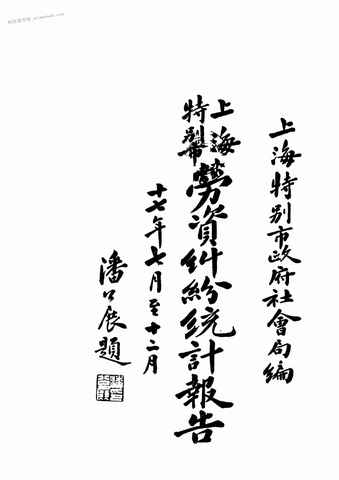 上海特别市政府社會局编
上海特别市勞資糾紛統計報告
十七年七月至十二月
潘公展題